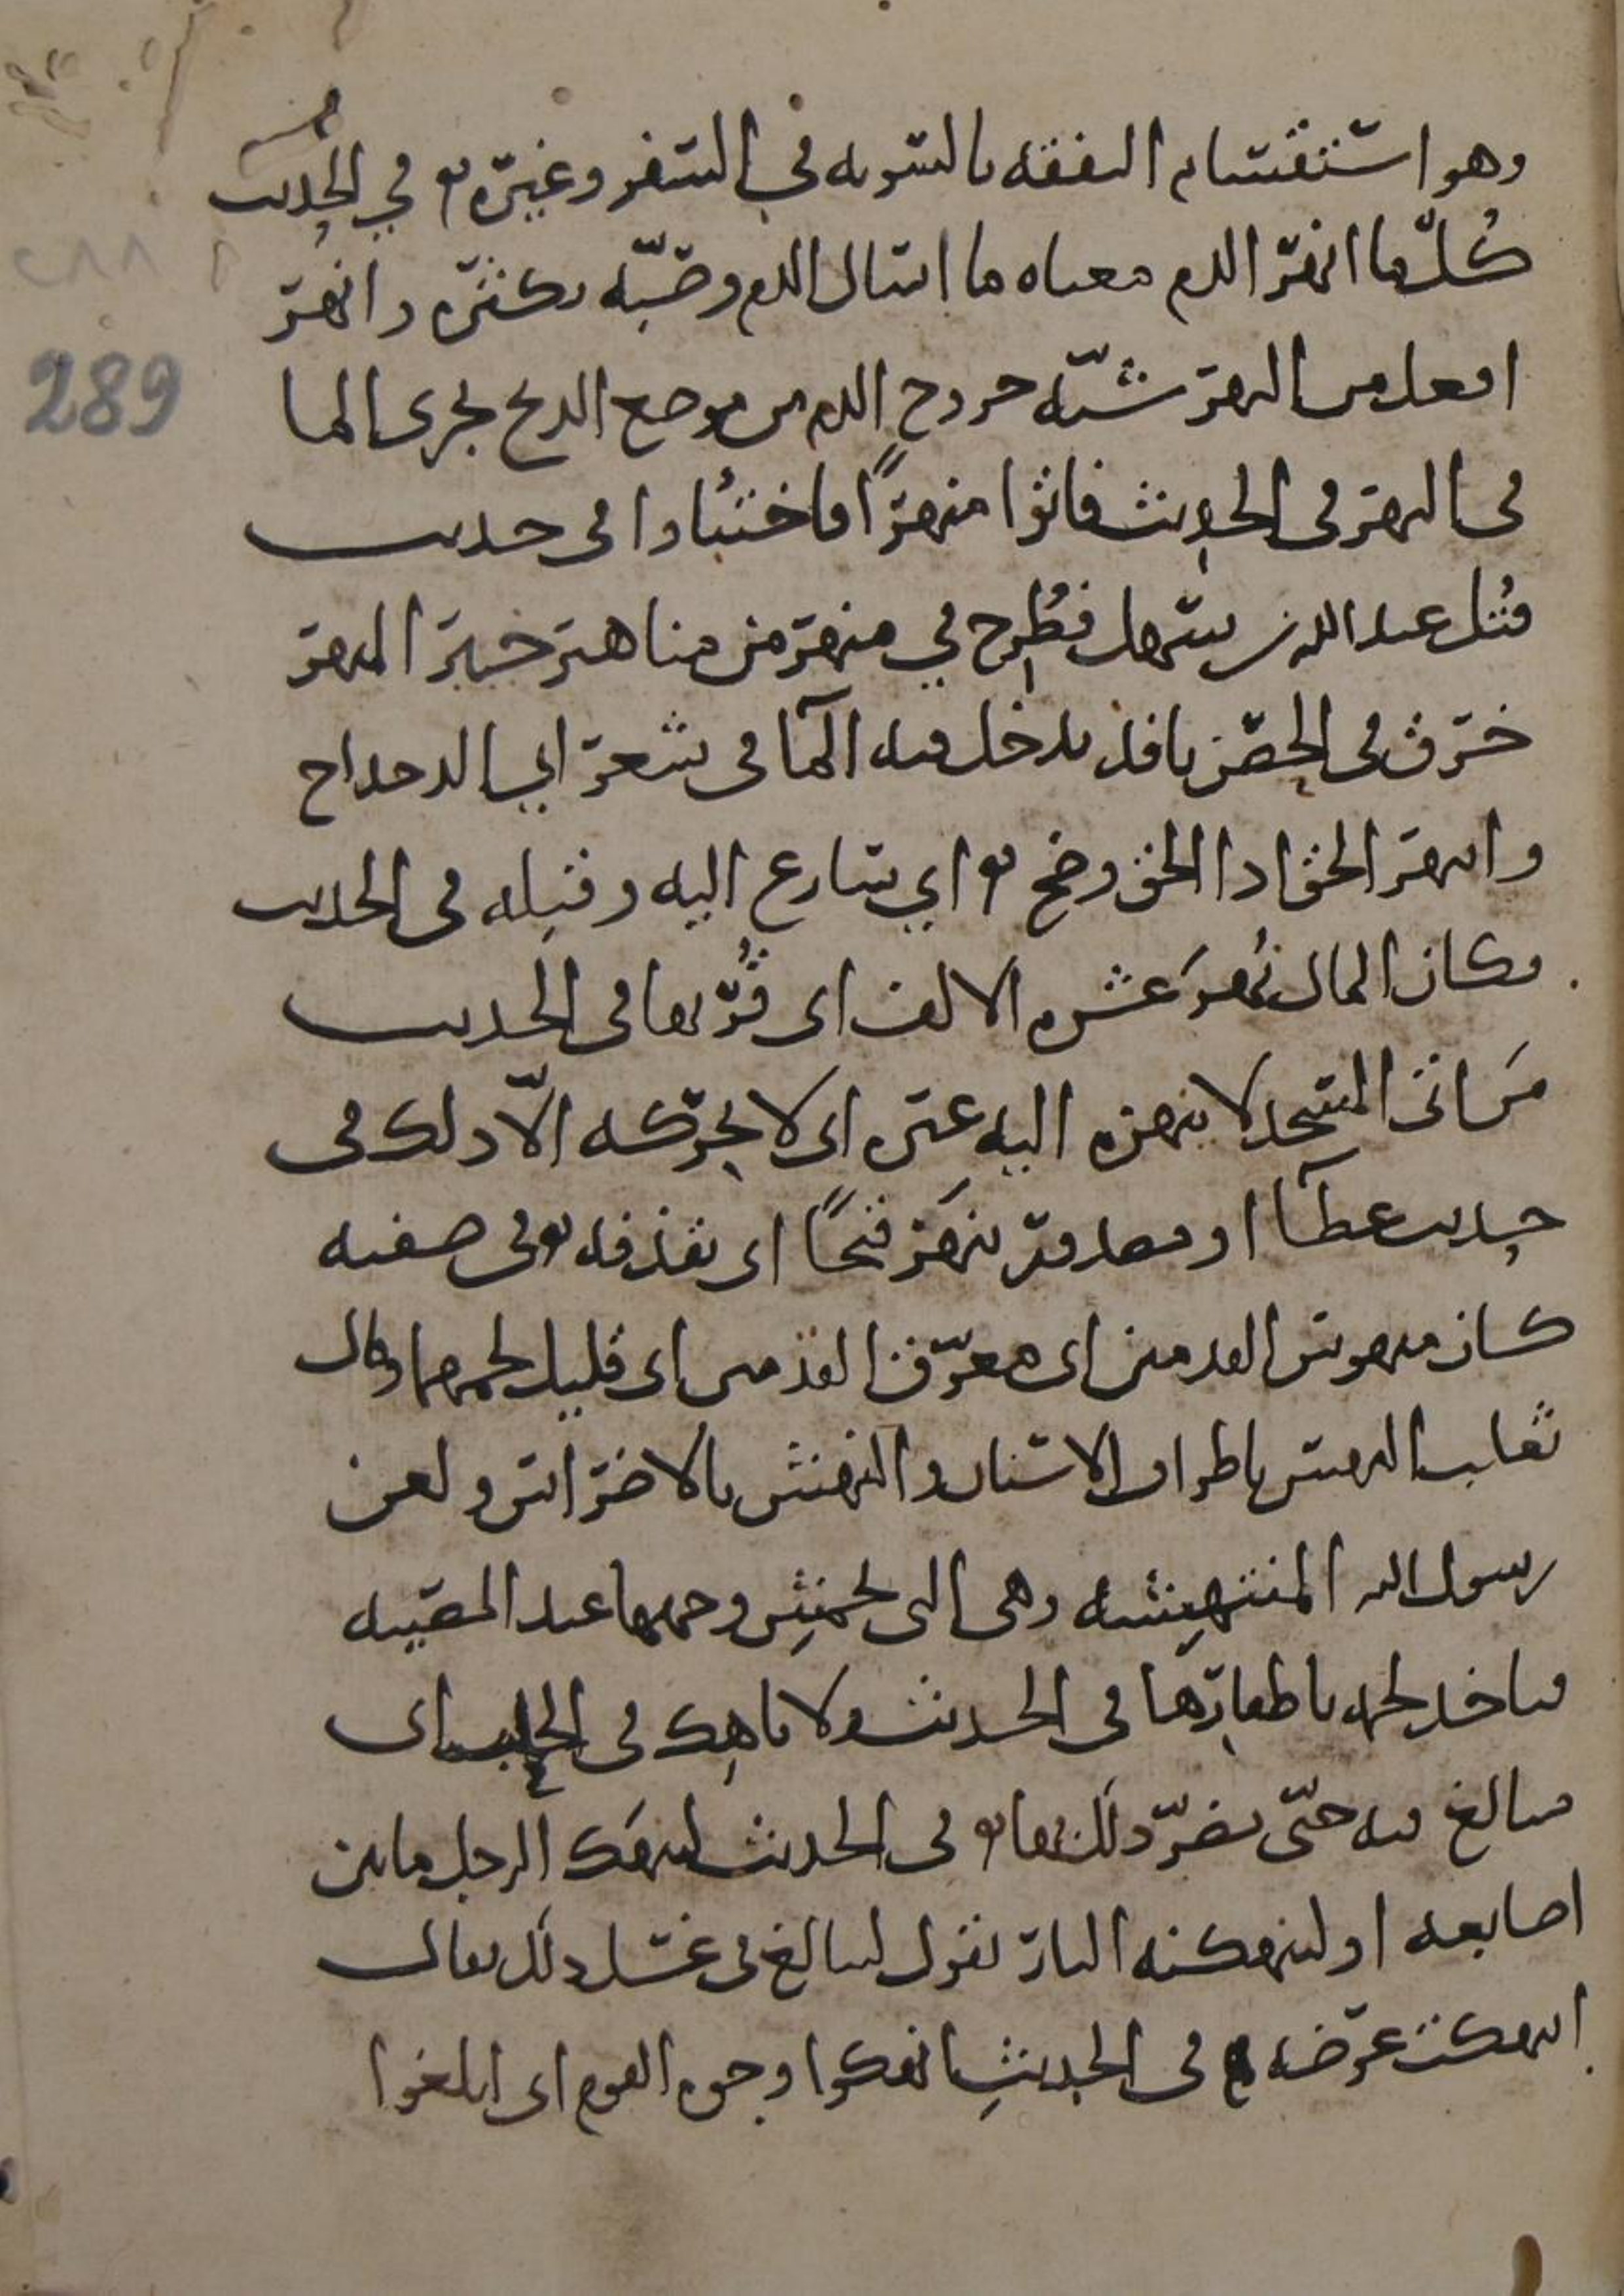 وهو استقسام النفقه بالسويه في السفر وغيره في الحديث
كُلّ ما انهر الدم معناه ما اسال الدم وصبّه بكثره وانهر
افعل من النهر شبّه خروج الدم من موضع الذبح بجرى الما
فى النهر فى الحديث فاتوا منهرًا فاختبُاوا فى حديث
قُتل عبد الله بن سهل فطُرح في منهر من مناهر خيبر المنهر
خرق فى الحصن نافذ يدخل فيه المآ فى شعر ابي الدحداح
وانهر الحق اذا الحق وضح اي سارع اليه وقبله فى الحديث
فكان المال نُهز عشره الالف اى قُرّبها فى الحديث
من اتى المسجد لا ينهزه اليه غيره اى لا يحرّكه الّا ذلك فى
حديث عطآ او مصدور ينهز قيحًا اى يقذفه فى صفته
كان منهوس القدمين اى معرّق القدمين اى قليل لحمهما وقال
ثعلب النهس باطراف الاسنان والنهش بالاضراس ولعن
رسول الله المنتهشه وهى التى تخمش وجهها عند المصيبه
فتاخذ لحمه باظفارها فى الحديث ولا ناهك فى الحلب اى
مبالغ فيه حتّى يضرّ ذلك بها فى الحديث لينهك الرجل ما بين
اصابعه او لينهكنه النار يقول ليبالغ فى غسل ذلك يقال
انهكت عرضه فى الحديث انهكوا وجوه القوم اى ابلغوا
289